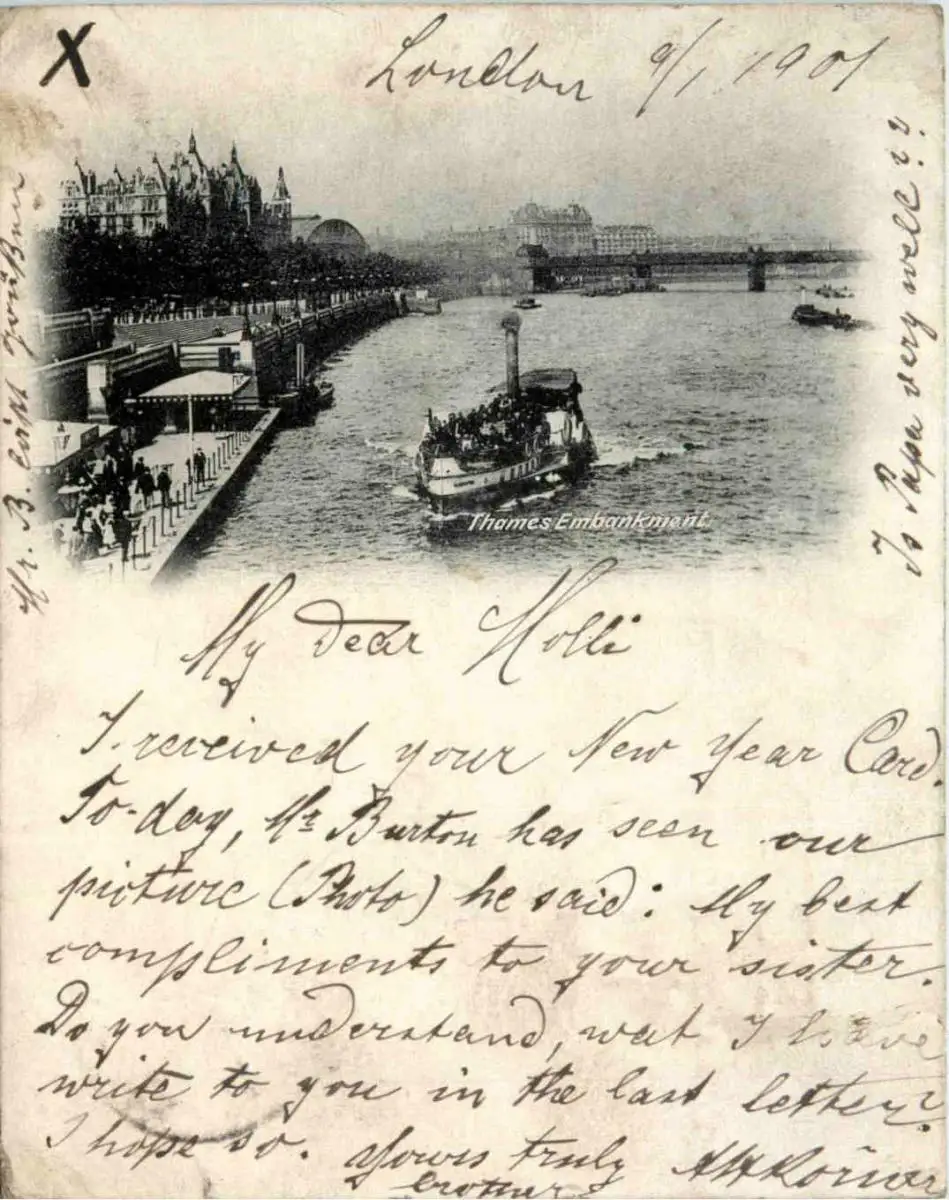 X
London 9/1. 1901
Is Papa very well??
Mr. B. läßt grüßen
Thames Embankment.
My dear Molli
I received your New Year Card.
To-day, Mr Burton has seen our
picture (Photo) he said: My best
compliments to your sister.
Do you understand, wat I have
write to you in the last letter?
I hope so. Yours truly
brother